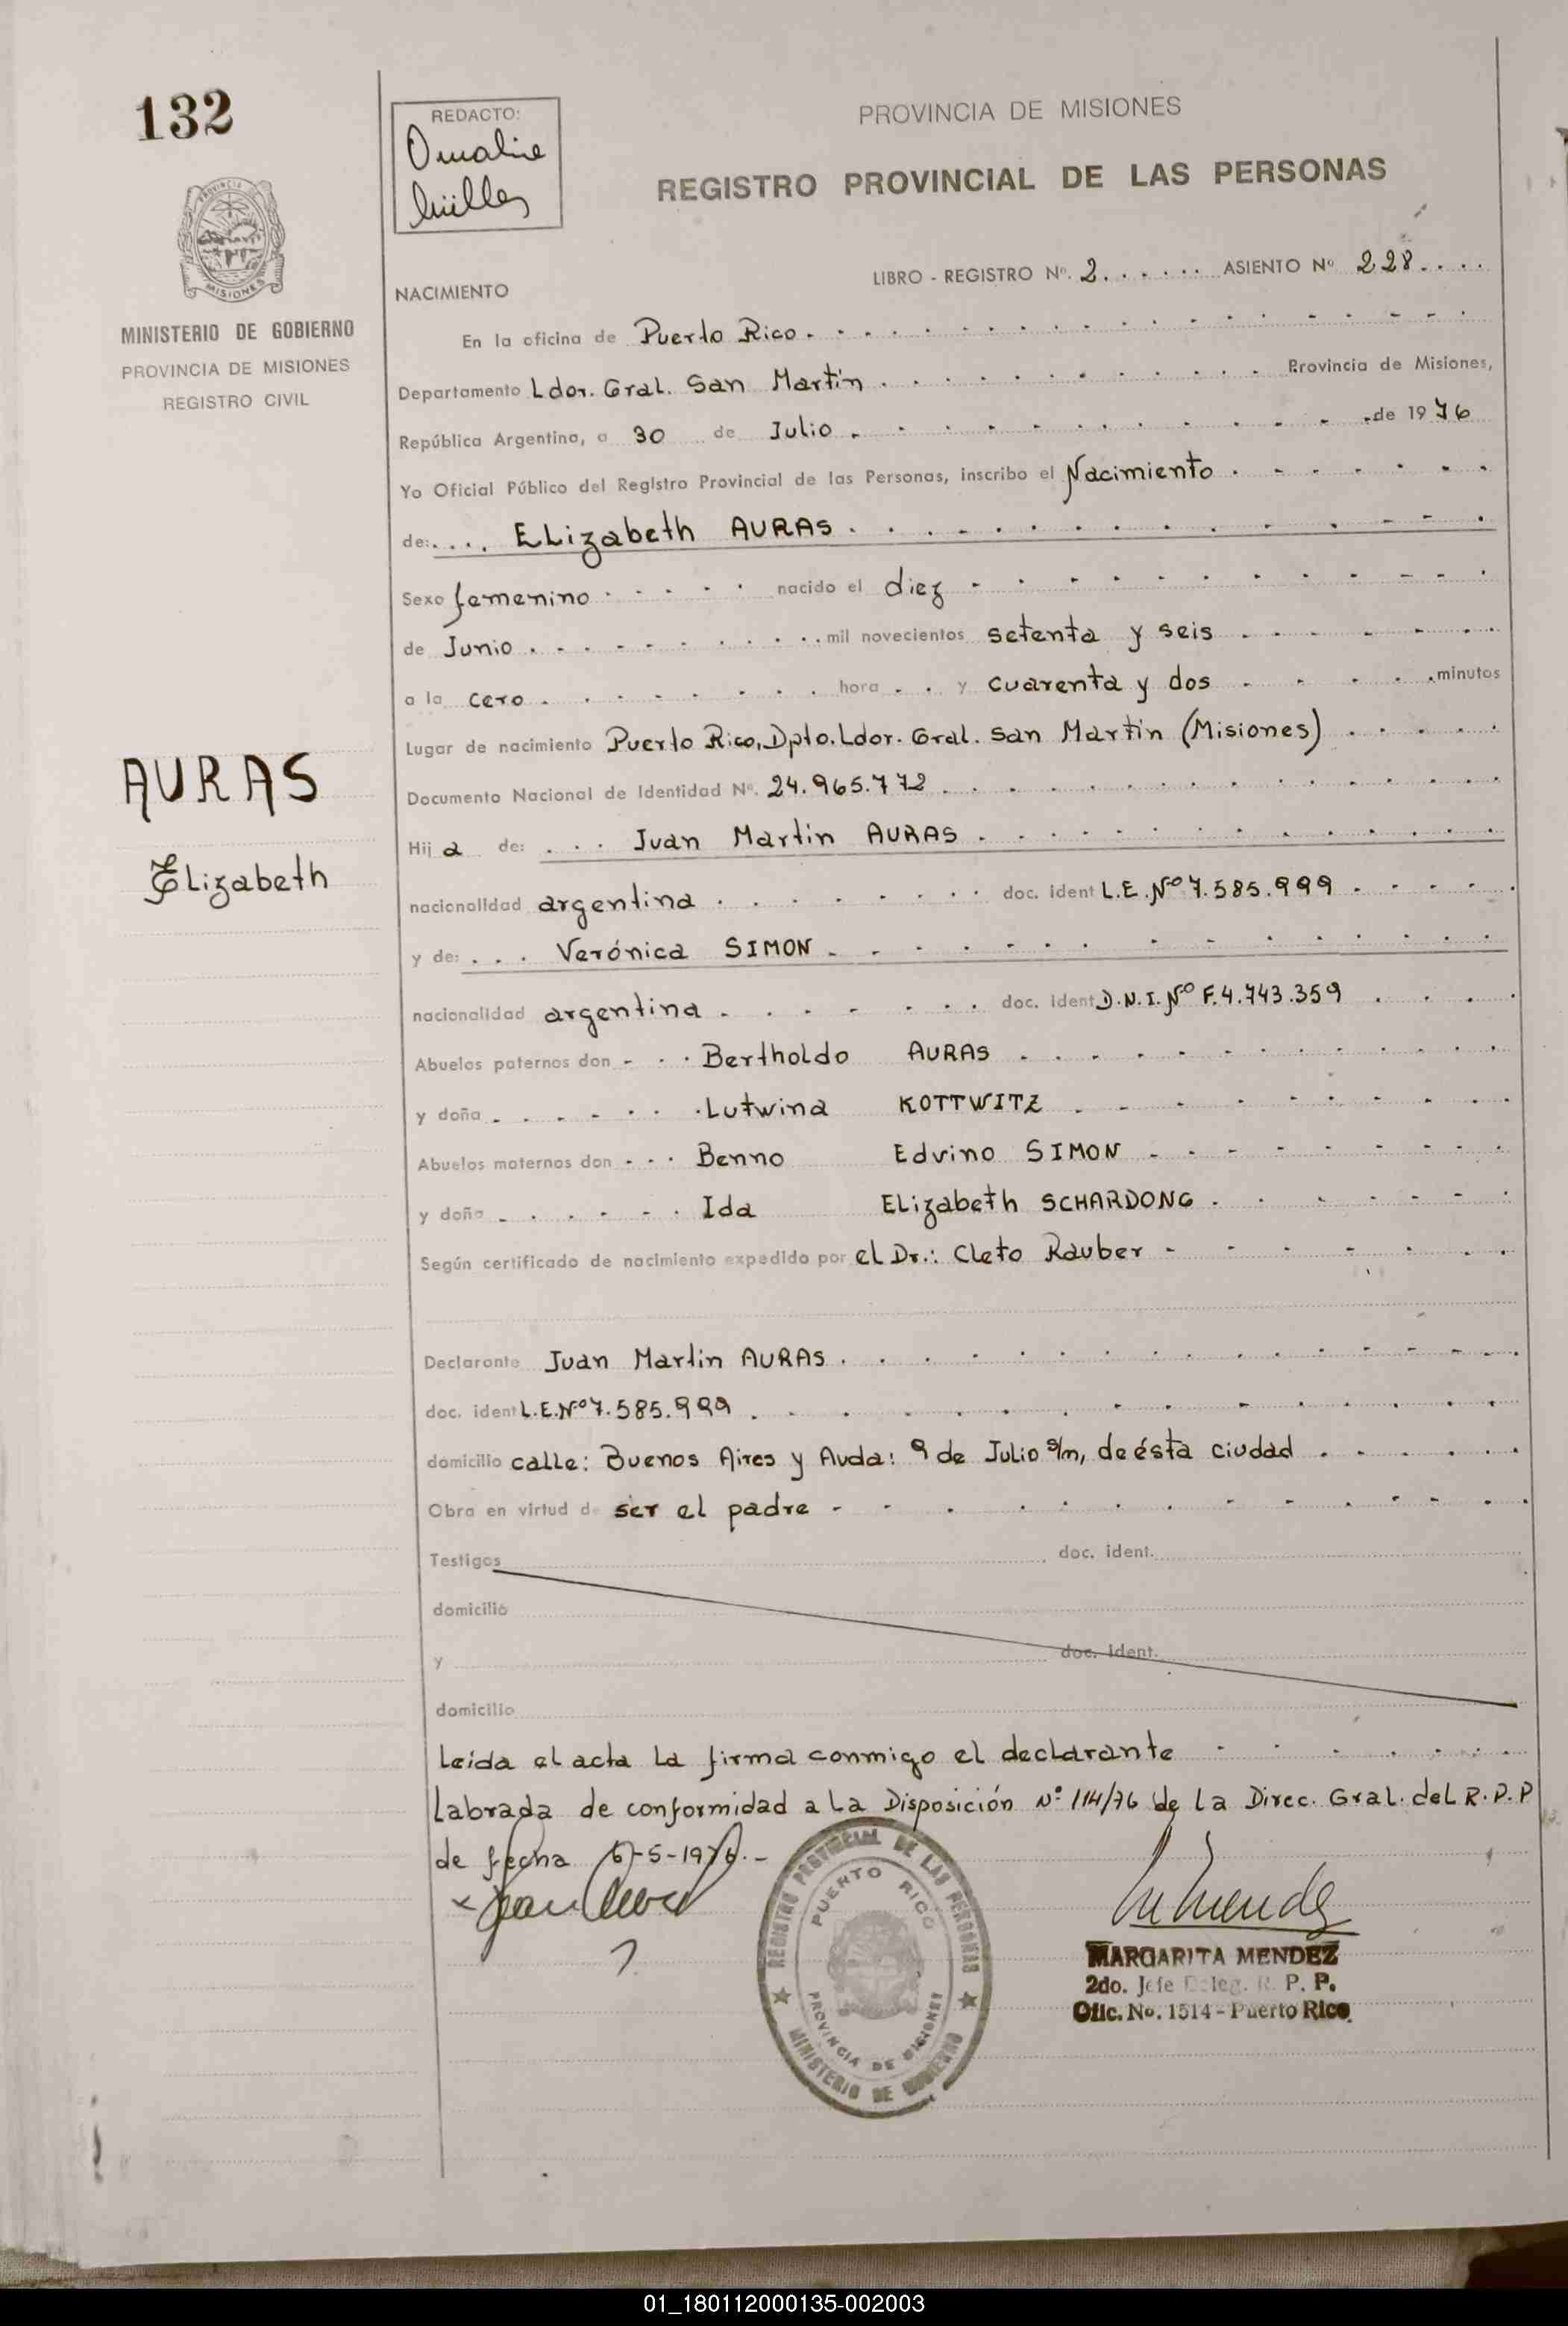 132
REDACTO:
Omaline
Müller
PROVINCIA DE MISIONES
REGISTRO PROVINCIAL DE LAS PERSONAS
PROVINCIA DE
MISIONES
MINISTERIO DE GOBIERNO
PROVINCIA DE MISIONES
REGISTRO CIVIL
LIBRO - REGISTRO Nº. 2. ASIENTO Nº 228.
NACIMIENTO
En la oficina de Puerto Rico.
Departamento Ldor. Gral. San Martín . Provincia de Misiones,
República Argentina, a 30 de Julio . de 1976
Yo Oficial Público del Registro Provincial de las Personas, inscribo el Nacimiento
de: Elizabeth AURAS.
Sexo femenino nacido el diez
de Junio . mil novecientos setenta y seis
a la cero . hora y cuarenta y dos minutos
Lugar de nacimiento Puerto Rico, Dpto. Ldor. Gral. San Martín (Misiones)
Documento Nacional de Identidad Nº. 24.965.772
AURAS
Elizabeth
Hija de: Juan Martin AURAS
nacionalidad argentina doc. ident L.E.Nº 7.585.999
y de: Verónica SIMON
nacionalidad argentina doc. ident D.N.I.Nº F.4.743.359
Abuelos paternos don Bertholdo AURAS
y doña Lutwina KOTTWITZ
Abuelos maternos don Benno Edvino SIMON
y doña Ida Elizabeth SCHARDONG
Según certificado de nacimiento expedido por el Dr.: Cleto Rauber
Declarante Juan Martin AURAS
doc. ident L.E.Nº 7.585.999
domicilio calle: Buenos Aires y Avda: 9 de Julio s/n, de ésta ciudad
Obra en virtud de ser el padre
Testigos doc. ident.
domicilio
y doc. ident.
domicilio
Leída el acta la firma conmigo el declarante
Labrada de conformidad a la Disposición Nº 114/76 de la Direc. Gral. del R.P.P
de fecha 6-5-1976.-
REGISTRO PROVINCIAL DE LAS PERSONAS
PUERTO RICO
PROVINCIA DE MISIONES
MINISTERIO DE GOBIERNO
MARGARITA MENDEZ
2do. Jefe Deleg. R. P. P.
Ofic. No. 1514 - Puerto Rico
01_180112000135-002003